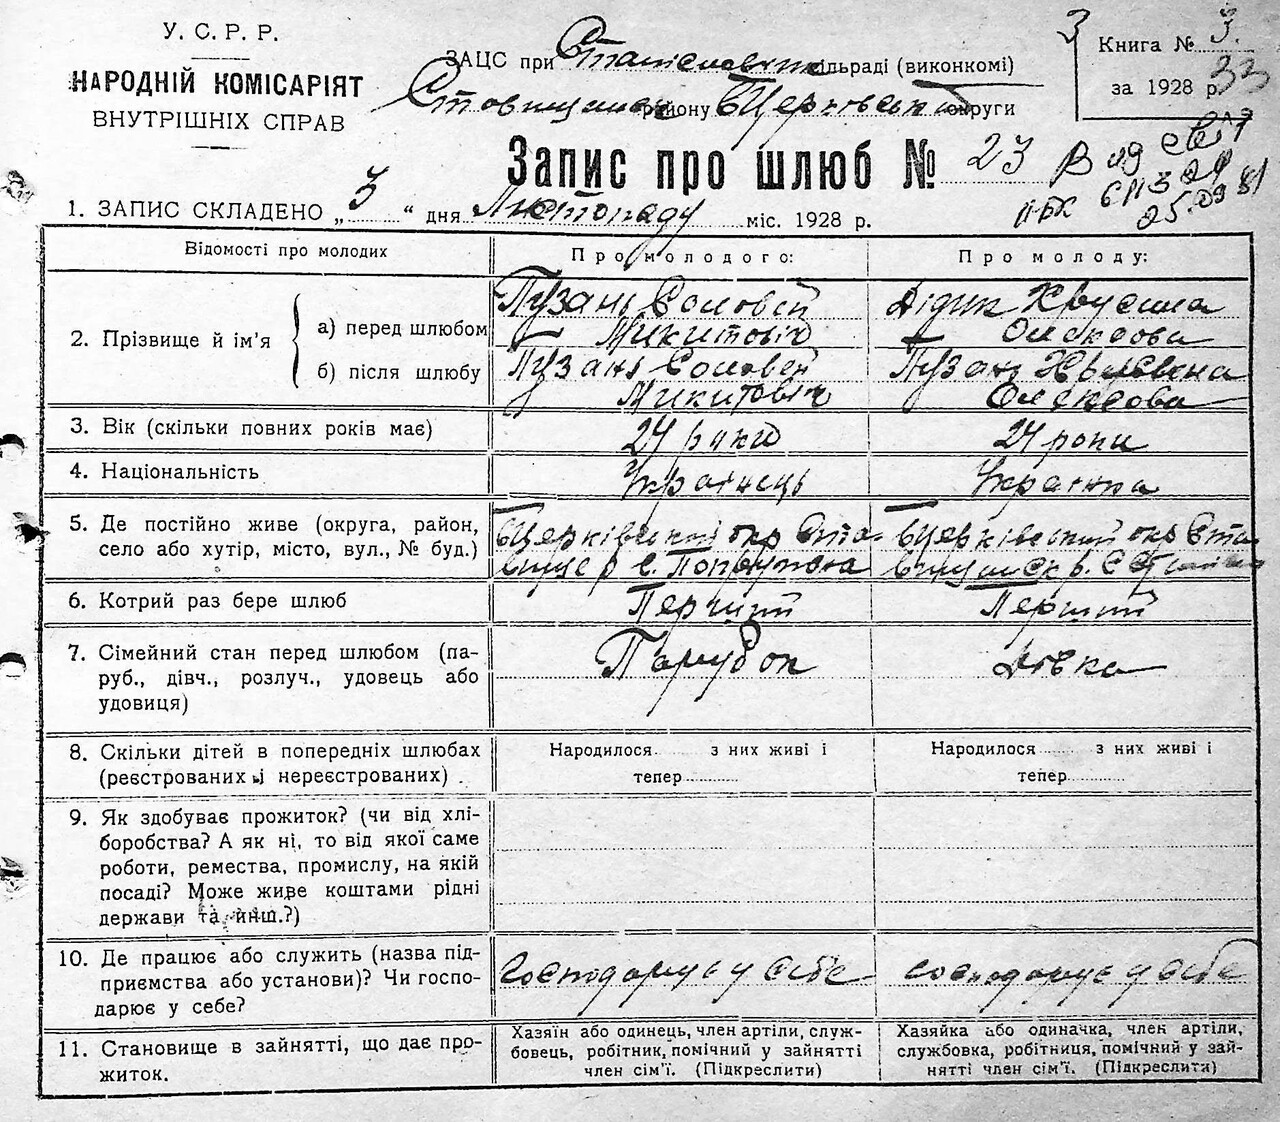 У. С. Р. Р.
НАРОДНІЙ КОМІСАРІЯТ
ВНУТРІШНІХ СПРАВ
ЗАЦС при сільраді (виконкомі)
району Бцерківської округи
3
Книга № 3.
за 1928 р. 33
Запис про шлюб № 23
25.09 81
1. ЗАПИС СКЛАДЕНО „ 3 “ дня Листопаду міс. 1928 р.
Відомості про молодих
Про молодого:
Про молоду:
2. Прізвище й ім'я
а) перед шлюбом
Пузань Соловей
Микитович
Дідик
Олексова
б) після шлюбу
Пузань Соловей
Микитовіч
Пузань
Олексова
3. Вік (скільки повних років має)
24 роки
24 роки
4. Національність
Українець
Українка
5. Де постійно живе (округа, район,
село або хутір, місто, вул., № буд.)
Бцерківський окр Ста-
Бцерківський окр Ста
6. Котрий раз бере шлюб
Перший
Перший
7. Сімейний стан перед шлюбом (па-
руб., дівч., розлуч., удовець або
удовиця)
Парубок
Дівка
8. Скільки дітей в попередніх шлюбах
(реєстрованих і нереєстрованих) .
Народилося з них живі і
тепер
Народилося з них живі і
тепер
9. Як здобуває прожиток? (чи від хлі-
боробства? А як ні, то від якої саме
роботи, ремества, промислу, на якій
посаді? Може живе коштами рідні
держави та инш.?)
10. Де працює або служить (назва під-
приємства або установи)? Чи госпо-
дарює у себе?
Господарує у себе
господарує у себе
11. Становище в зайнятті, що дає про-
житок.
Хазяїн або одинець, член артіли, служ-
бовець, робітник, помічний у зайнятті
член сім'ї. (Підкреслити)
Хазяйка або одиначка, член артіли,
службовка, робітниця, помічний у зай-
нятті член сім'ї. (Підкреслити)